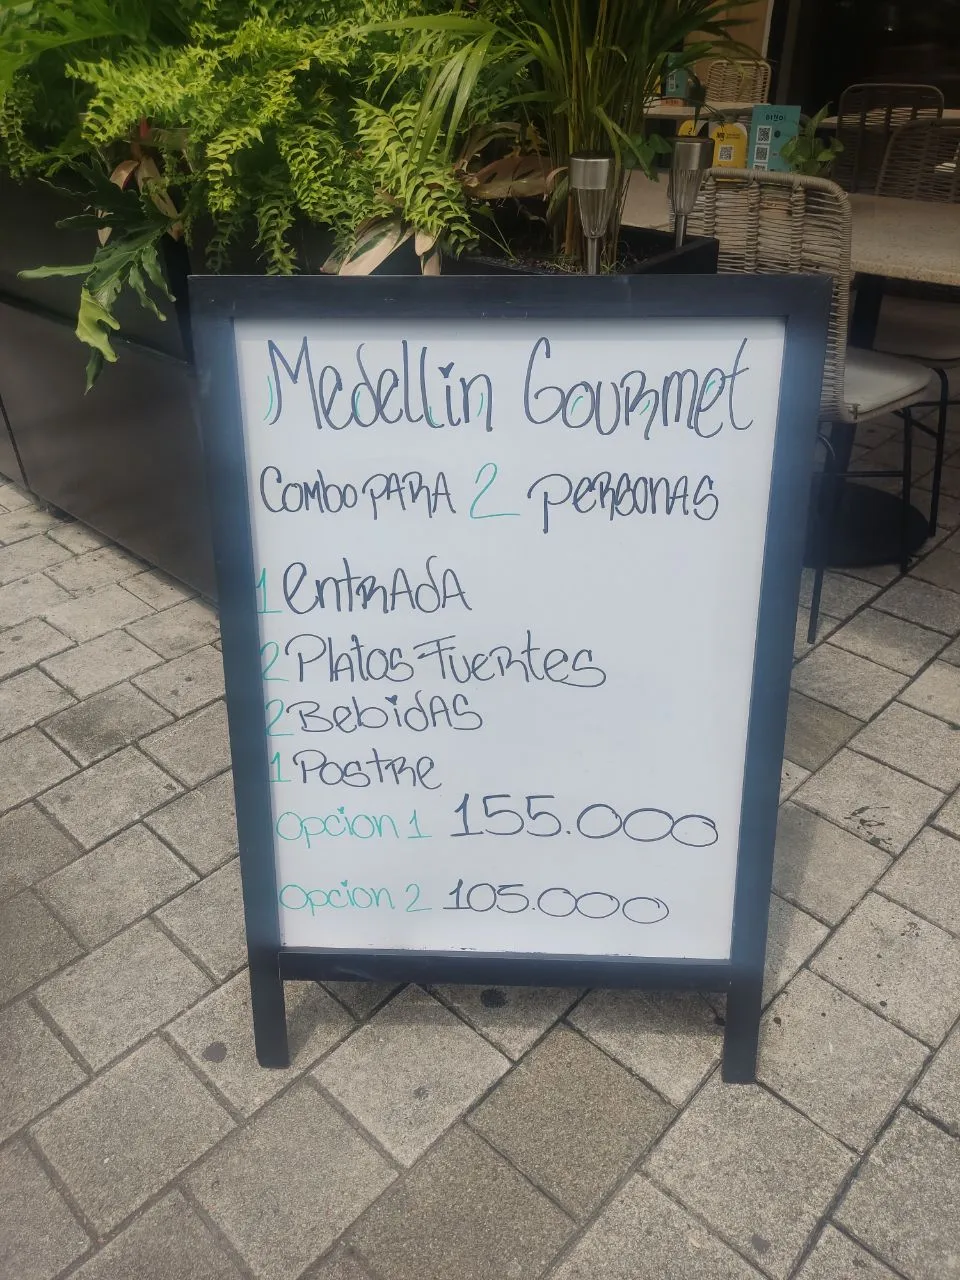 Medellin Gourmet
Combo PARA 2 personas
1 EntRAda
2 Platos Fuertes
2 BebidAS
1 Postre
Opcion 1 155.000
Opcion 2 105.000